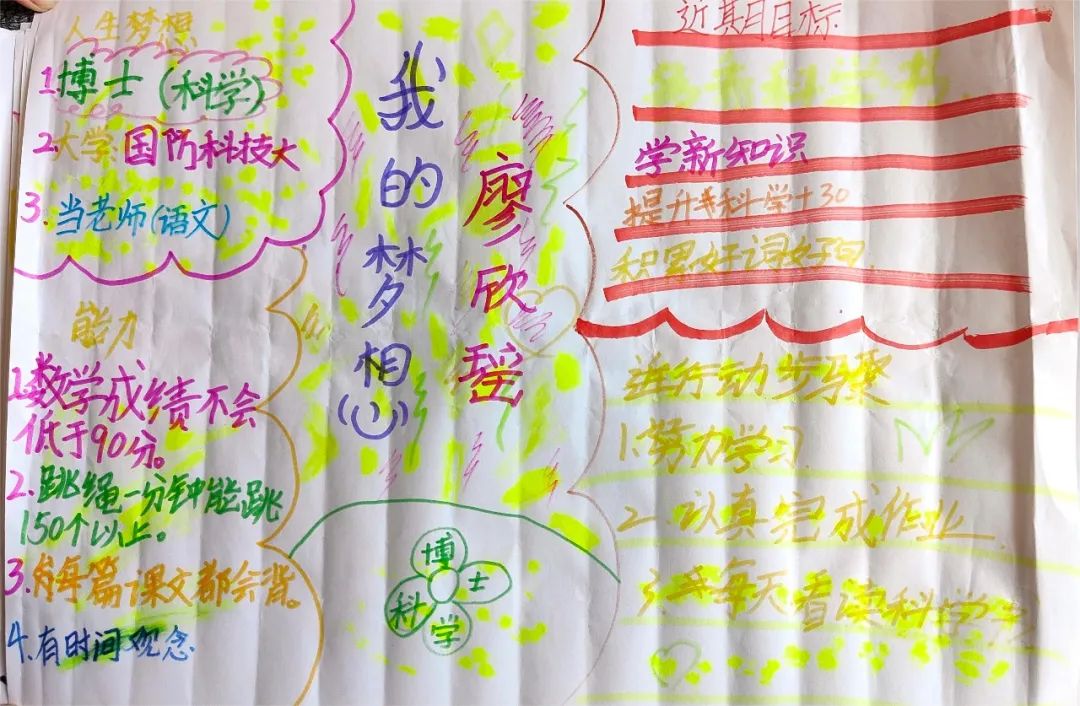 人生梦想
1.博士（科学）
2.大学 国防科技大
3.当老师（语文）
能力
1.数学成绩不会
低于90分。
2.跳绳一分钟能跳
150个以上。
3.每篇课文都会背。
4.有时间观念
我的梦相
廖欣瑶
博士
科学
近期目标
学新知识
提升科学+30
积累好词好句
进行动步骤
1.努力学习
2.认真完成作业
3.每天看读科学书